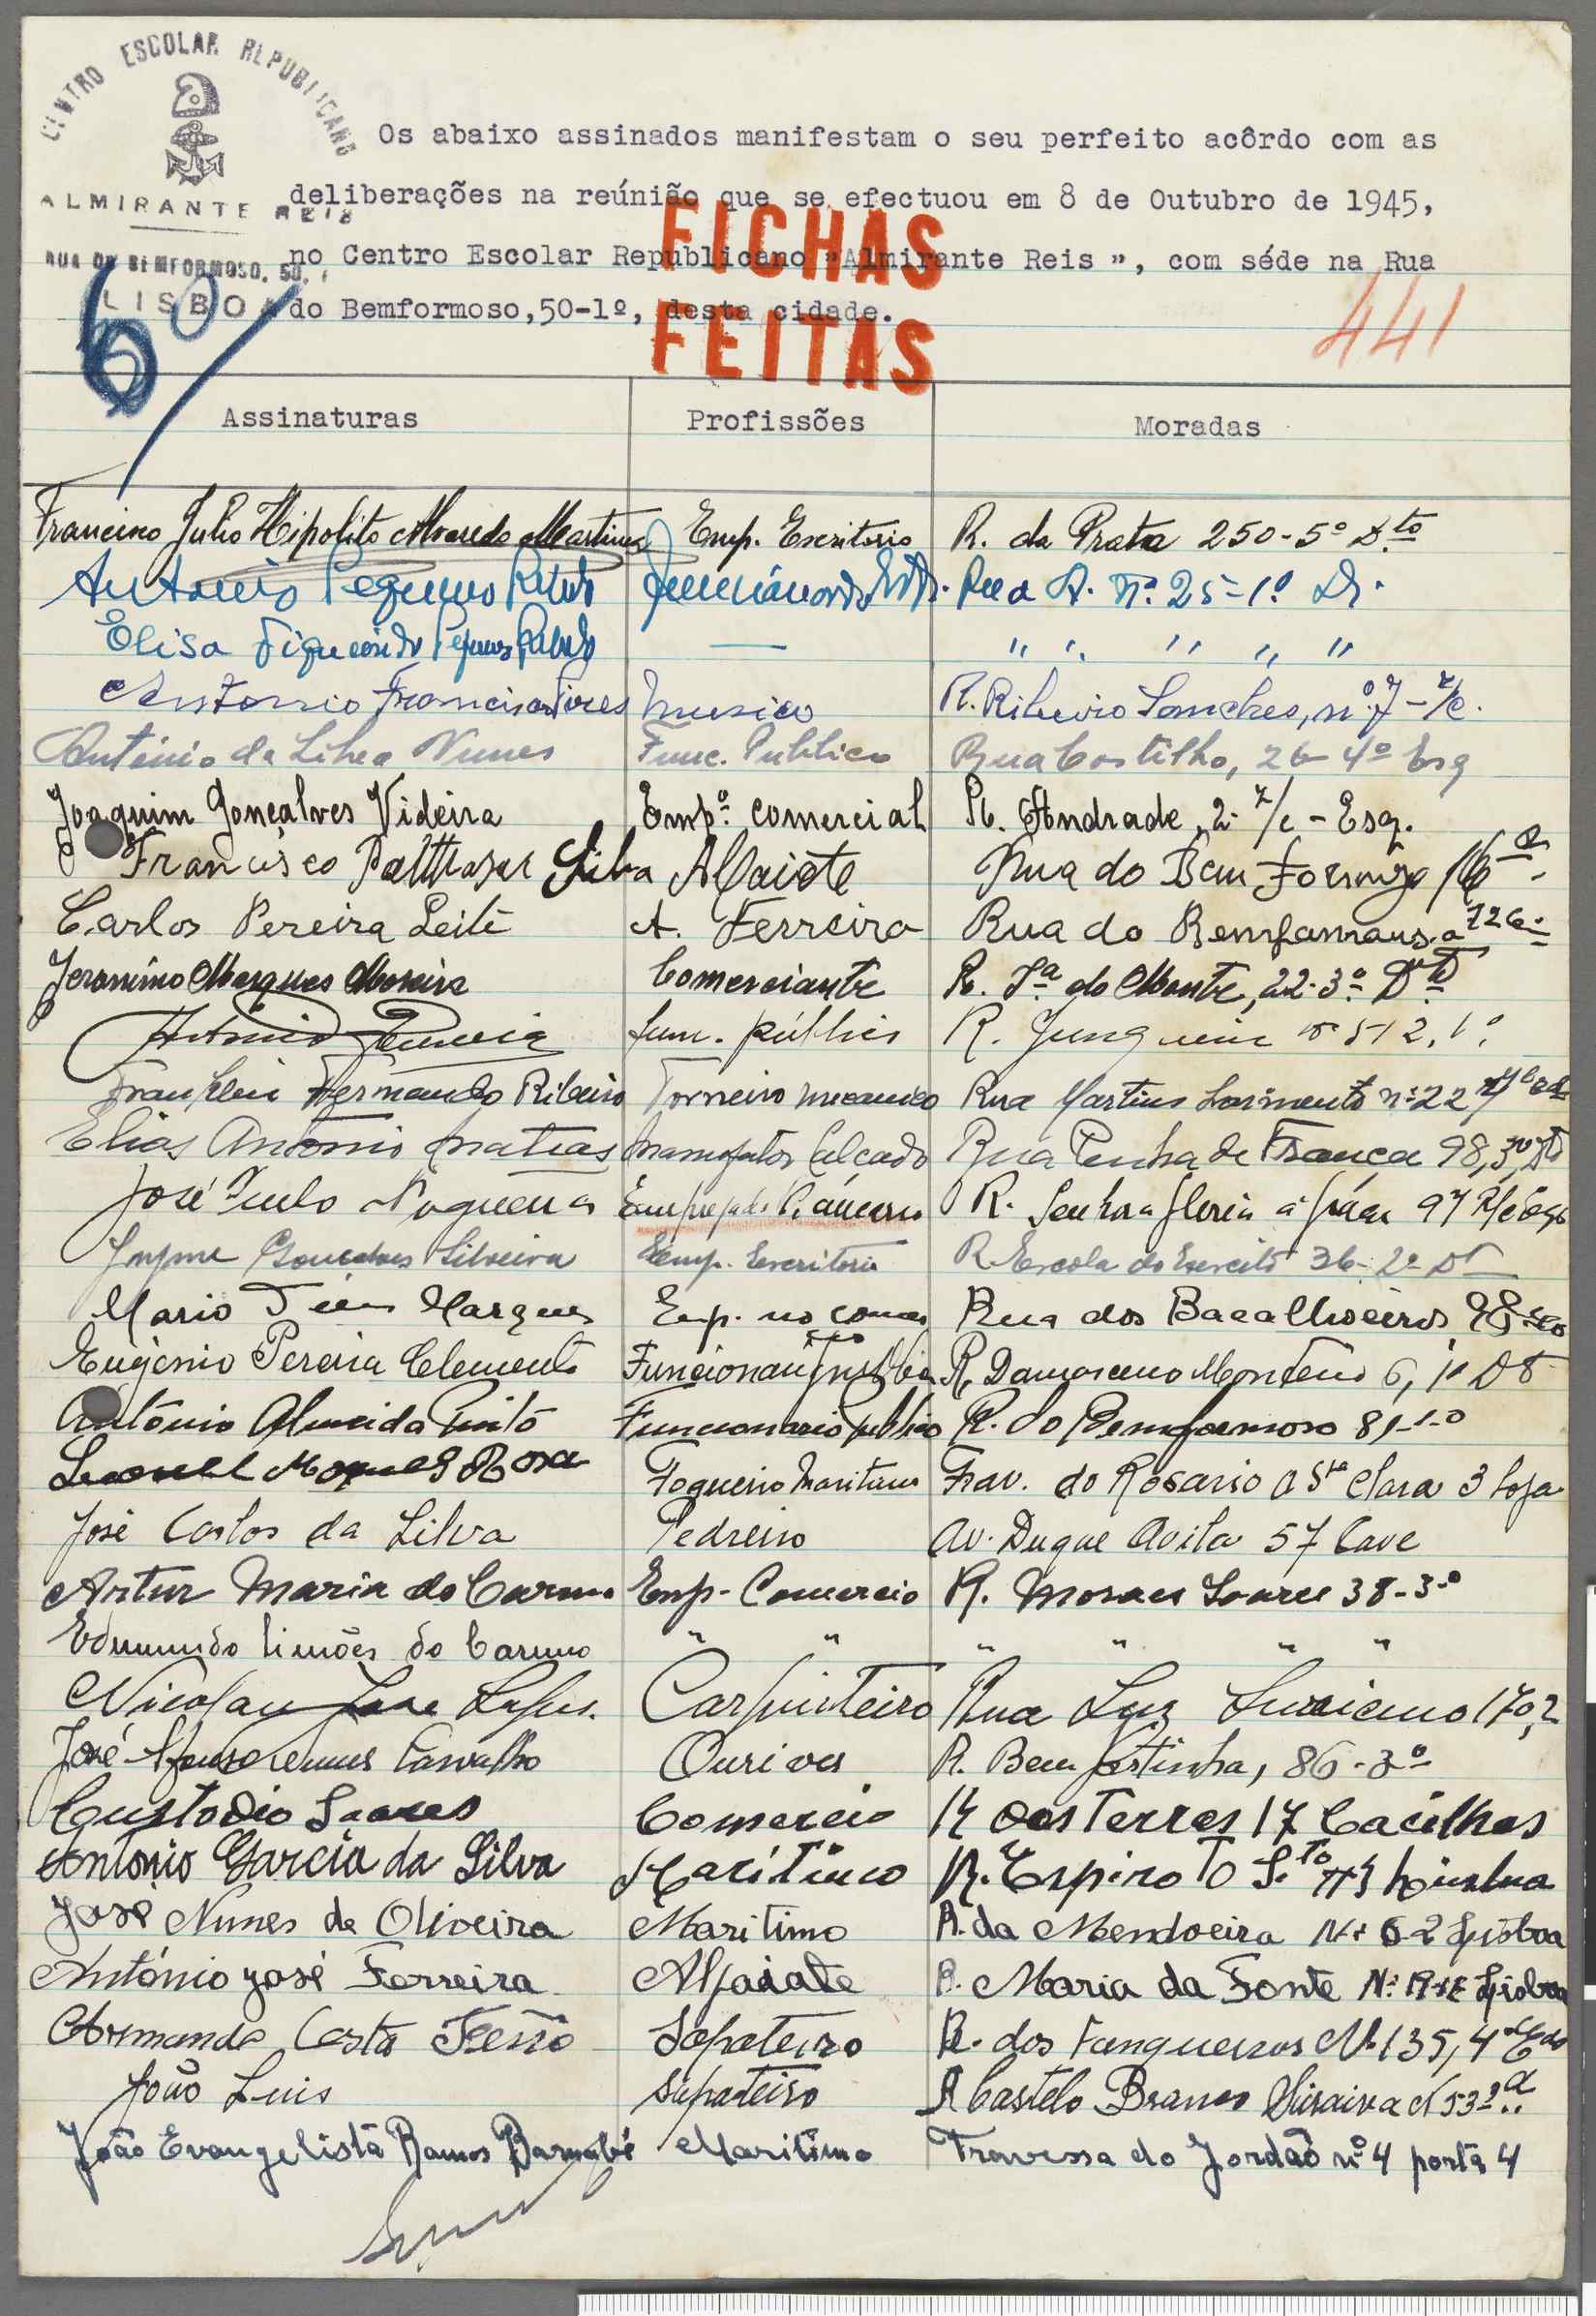 CENTRO ESCOLAR REPUBLICANO
ALMIRANTE REIS
RUA DO BEMFORMOSO, 50,
LISBOA
6º
Os abaixo assinados manifestam o seu perfeito acôrdo com as
deliberações na reúnião que se efectuou em 8 de Outubro de 1945,
no Centro Escolar Republicano "Almirante Reis", com séde na Rua
do Bemformoso,50-1º, desta cidade.
FICHAS
FEITAS
441
Assinaturas Profissões Moradas
Francisco Julio Hipolito Alvaredo Martins Emp. Escritorio R. da Prata 250-5º Dto
Antonio Pequeno Rebelo Rua A. Nº 25-1º D.
Elisa Figueiredo Pequeno Rebelo — " " " " "
Antonio Francisco Pires Musico R. Ribeiro Sanches, nº 7-r/c.
António da Silva Nunes Func. Publico Rua Castilho, 26-4º Esq
Joaquim Gonçalves Videira Empº. comercial R. Andrade, 2-r/c-Esq.
Francisco Balthasar Silva Alfaiate Rua do Bem Formozo
Carlos Pereira Leite A. Ferreiro Rua do 126
Jeronimo Marques Moreira Comerciante R. Sª do Monte, 22-3º Dto
António fun. públic R. Junqueira nº 512, 1º
Franklin Hermando Ribeiro Torneiro mecanico Rua Martins Sarmento nº 22
Elias Antonio Matias Calçado Rua Penha de França 98, 3º Dto
José Nogueira Empregado Bancario R. Senhora Gloria á Graça 97 R/c Esq
Jayme Gonçalves Silveira Emp. Escritorio R. Escola do Exercito 36-2º Dto
Mario Marques Emp. no comercio Rua dos Bacalhoeiros 98
Eugénio Pereira Clemente Funcionario Publico R. Damasceno Monteiro 6, 1º Dto
António Almeida Pinto Funcionario publico R. do Bemformoso 81-1-º
Leonel Rosa Fogueiro Maritimo Trav. do Rosario a Sta Clara 3 loja
José Carlos da Silva Pedreiro Av. Duque Avila 57 Cave
Artur Maria do Carmo Emp-Comercio R. Moraes Soares 38-3-º
Edmundo Simões do Carmo " " " " " "
Nicolau José Carpinteiro Rua Luz Soriano 170, 2
José Afonso Carvalho Ourives R. Bempostinha, 86-3º
Custodio Soares Comercio R das Terras 17 Cacilhas
António Garcia da Silva Maritimo R. Espirito Sto Lisboa
José Nunes de Oliveira Maritimo R. da Mendoeira Nº 62 Lisboa
António José Ferreira Alfaiate R. Maria da Fonte Nº Lisboa
Armando Costa Sapateiro R. dos Fanqueiros Nº 135, 4º Edo
João Luis sapateiro R Castelo Branco Saraiva N 53
João Evangelista Ramos Barnabé Maritimo Travessa do Jordão nº 4 porta 4